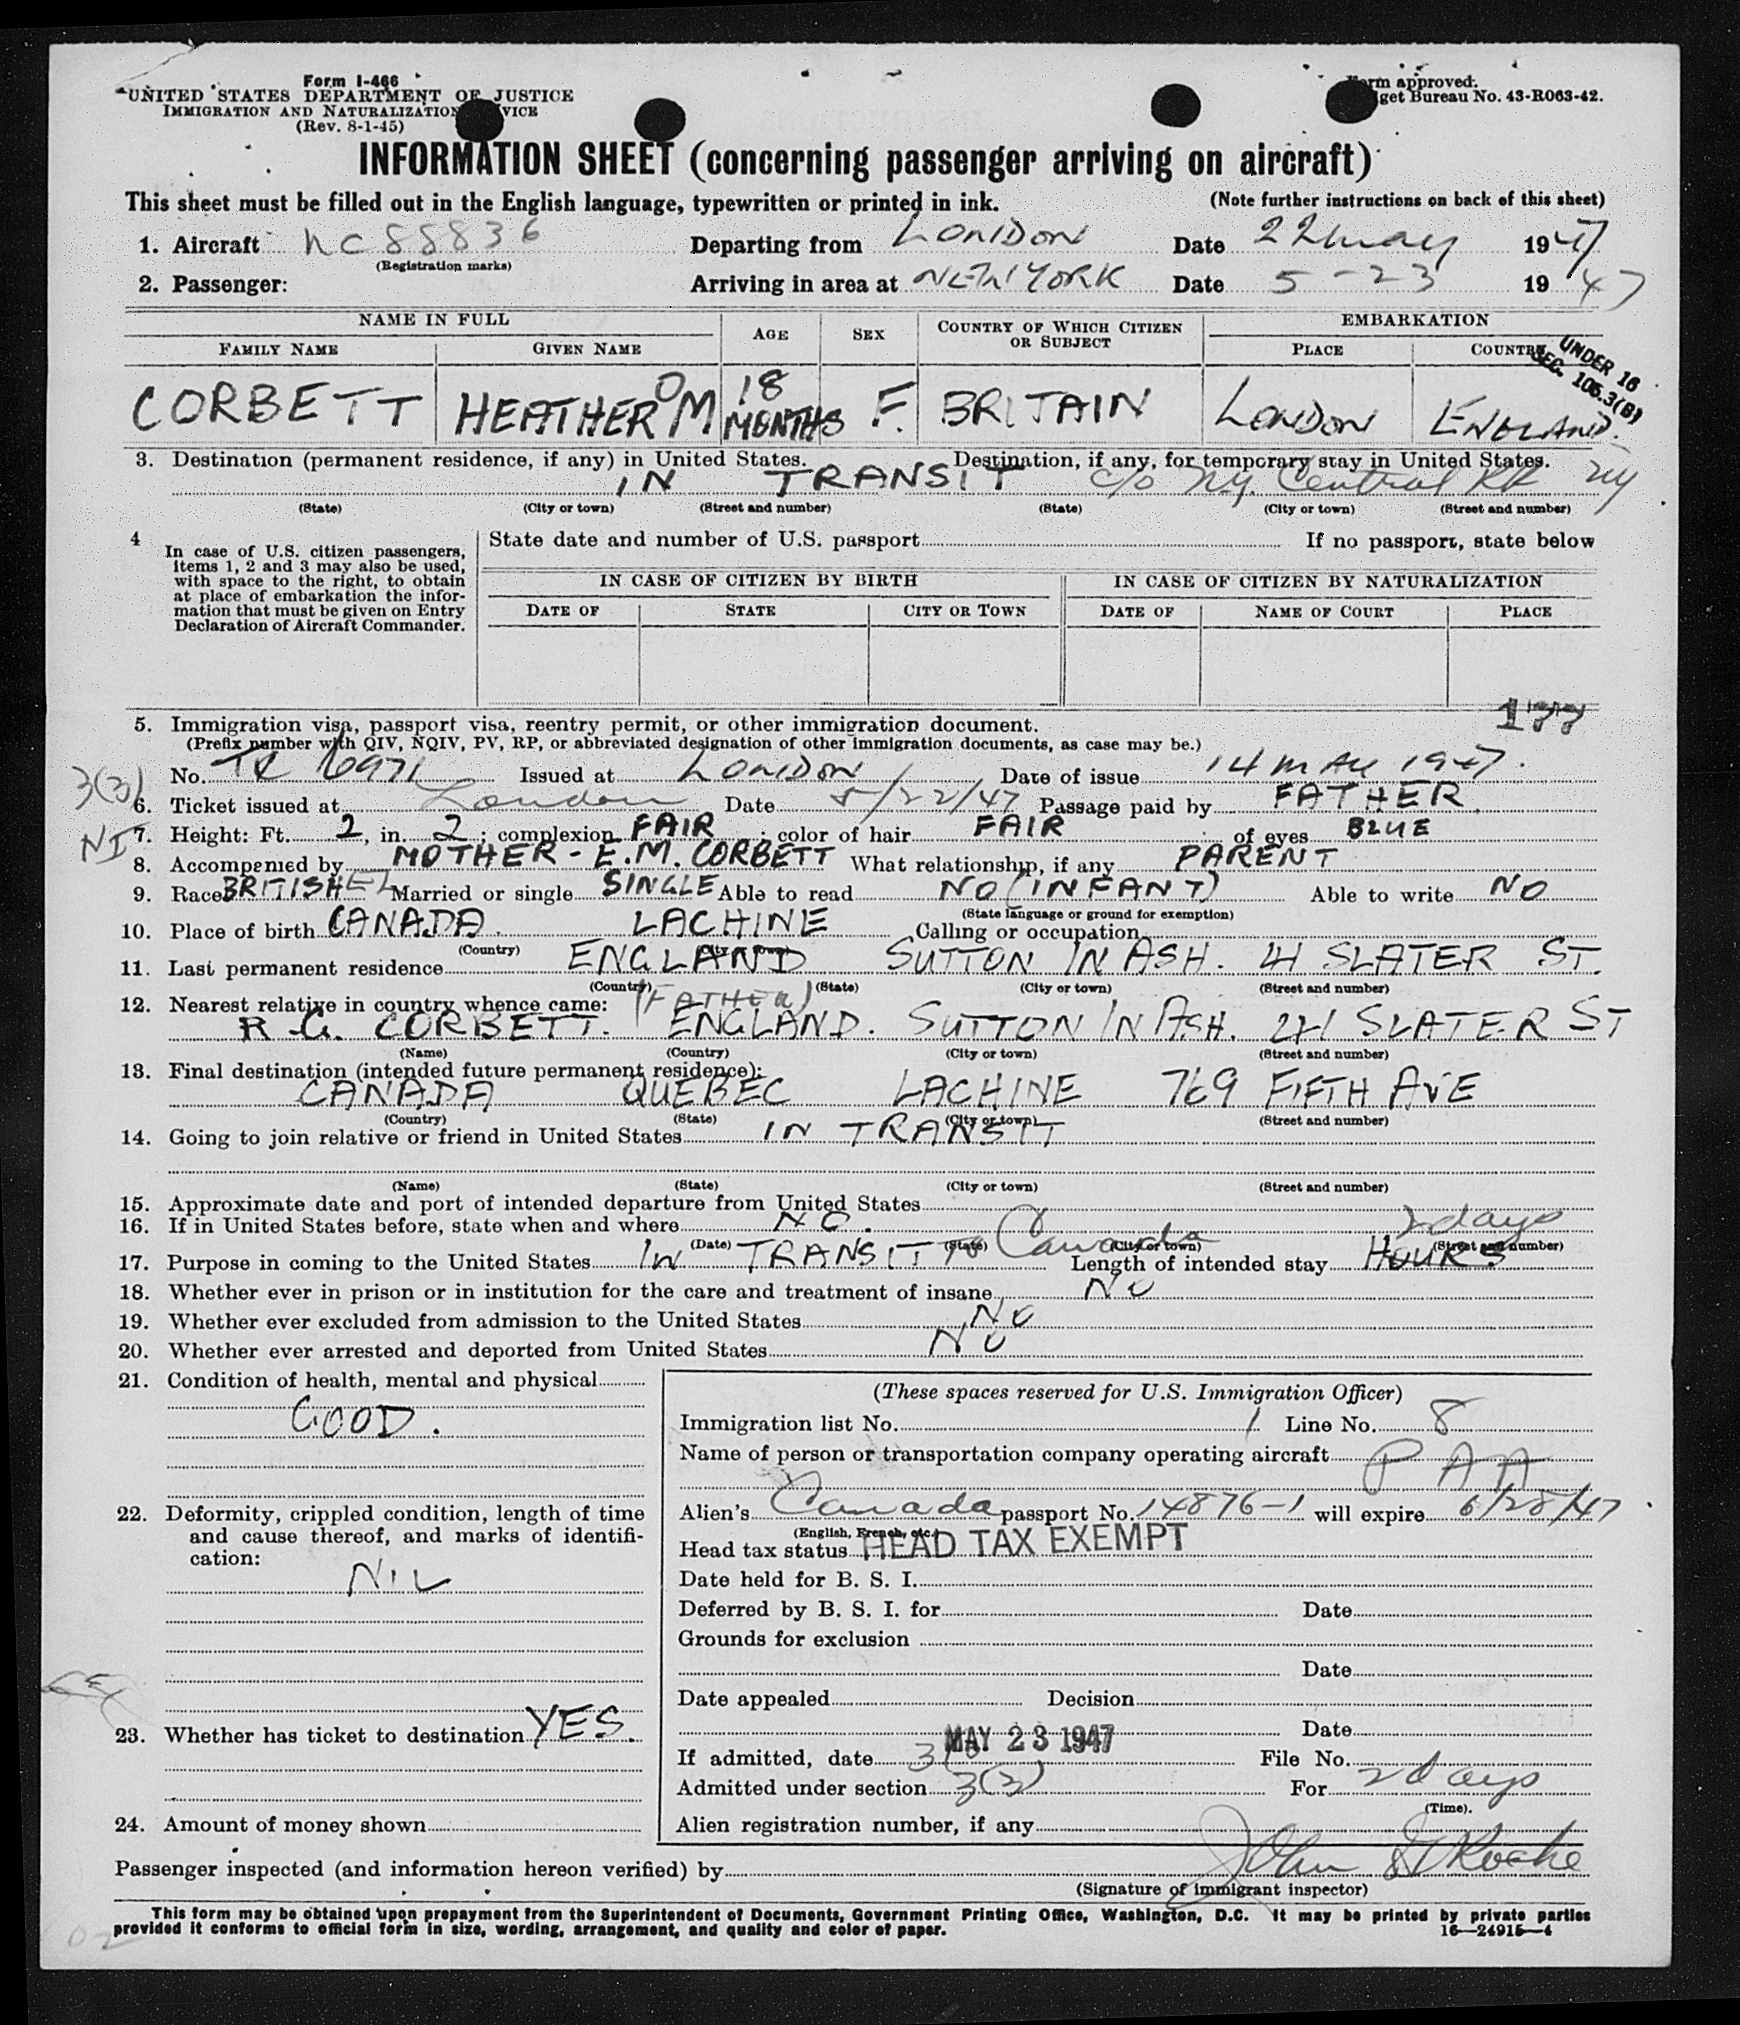 Form I-466
UNITED STATES DEPARTMENT OF JUSTICE
IMMIGRATION AND NATURALIZATION
(Rev. 8-1-45)
Form approved.
Budget Bureau No. 43-R063-42.
INFORMATION SHEET (concerning passenger arriving on aircraft)
This sheet must be filled out in the English language, typewritten or printed in ink. (Note further instructions on back of this sheet)
1. Aircraft NC88836 Departing from LONDON Date 22 May 1947
(Registration marks)
2. Passenger: Arriving in area at NEW YORK Date 5-23 1947
NAME IN FULL AGE SEX COUNTRY OF WHICH CITIZEN OR SUBJECT EMBARKATION
FAMILY NAME GIVEN NAME PLACE COUNTRY
UNDER 16
SEC. 105.3(B)
CORBETT HEATHER O M 18 MONTHS F. BRITAIN LONDON ENGLAND.
3. Destination (permanent residence, if any) in United States. Destination, if any, for temporary stay in United States.
IN TRANSIT c/o N.Y. Central RR NY
(State) (City or town) (Street and number) (State) (City or town) (Street and number)
4 In case of U.S. citizen passengers, items 1, 2 and 3 may also be used, with space to the right, to obtain at place of embarkation the information that must be given on Entry Declaration of Aircraft Commander.
State date and number of U.S. passport If no passport, state below
IN CASE OF CITIZEN BY BIRTH IN CASE OF CITIZEN BY NATURALIZATION
DATE OF STATE CITY OR TOWN DATE OF NAME OF COURT PLACE
5. Immigration visa, passport visa, reentry permit, or other immigration document.
(Prefix number with QIV, NQIV, PV, RP, or abbreviated designation of other immigration documents, as case may be.)
3(3) No. TC 6971 Issued at LONDON Date of issue 14 MAY 1947.
6. Ticket issued at London Date 5/22/47 Passage paid by FATHER.
NI 7. Height: Ft. 2, in. 2; complexion FAIR; color of hair FAIR; of eyes BLUE
8. Accompanied by MOTHER - E.M. CORBETT What relationship, if any PARENT
9. Race BRITISH Married or single SINGLE Able to read NO (INFANT) Able to write NO
(State language or ground for exemption)
10. Place of birth CANADA. LACHINE Calling or occupation
(Country) (City or town)
11. Last permanent residence ENGLAND SUTTON IN ASH. 41 SLATER ST.
(Country) (State) (City or town) (Street and number)
12. Nearest relative in country whence came: (FATHER)
R.G. CORBETT. ENGLAND. SUTTON IN ASH. 41 SLATER ST
(Name) (Country) (City or town) (Street and number)
13. Final destination (intended future permanent residence):
CANADA QUEBEC LACHINE 769 FIFTH AVE
(Country) (State) (City or town) (Street and number)
14. Going to join relative or friend in United States IN TRANSIT
(Name) (State) (City or town) (Street and number)
15. Approximate date and port of intended departure from United States
16. If in United States before, state when and where NO. 2 days
(Date) (State) (City or town) (Street and number)
17. Purpose in coming to the United States IN TRANSIT to Canada Length of intended stay HOURS
18. Whether ever in prison or in institution for the care and treatment of insane NO
19. Whether ever excluded from admission to the United States NO
20. Whether ever arrested and deported from United States NO
21. Condition of health, mental and physical
GOOD.
22. Deformity, crippled condition, length of time
and cause thereof, and marks of identifi-
cation:
NIL
23. Whether has ticket to destination YES.
24. Amount of money shown
(These spaces reserved for U.S. Immigration Officer)
Immigration list No. 1 Line No. 8
Name of person or transportation company operating aircraft PAA
Alien's Canada passport No. 14876-1 will expire 6/28/47
(English, French, etc.)
Head tax status HEAD TAX EXEMPT
Date held for B. S. I.
Deferred by B. S. I. for Date
Grounds for exclusion
Date
Date appealed Decision
Date
If admitted, date MAY 23 1947 File No.
Admitted under section 3(3) For 2 days
(Time).
Alien registration number, if any
Passenger inspected (and information hereon verified) by John Roche
(Signature of immigrant inspector)
This form may be obtained upon prepayment from the Superintendent of Documents, Government Printing Office, Washington, D.C. It may be printed by private parties
provided it conforms to official form in size, wording, arrangement, and quality and color of paper. 16—24915—4